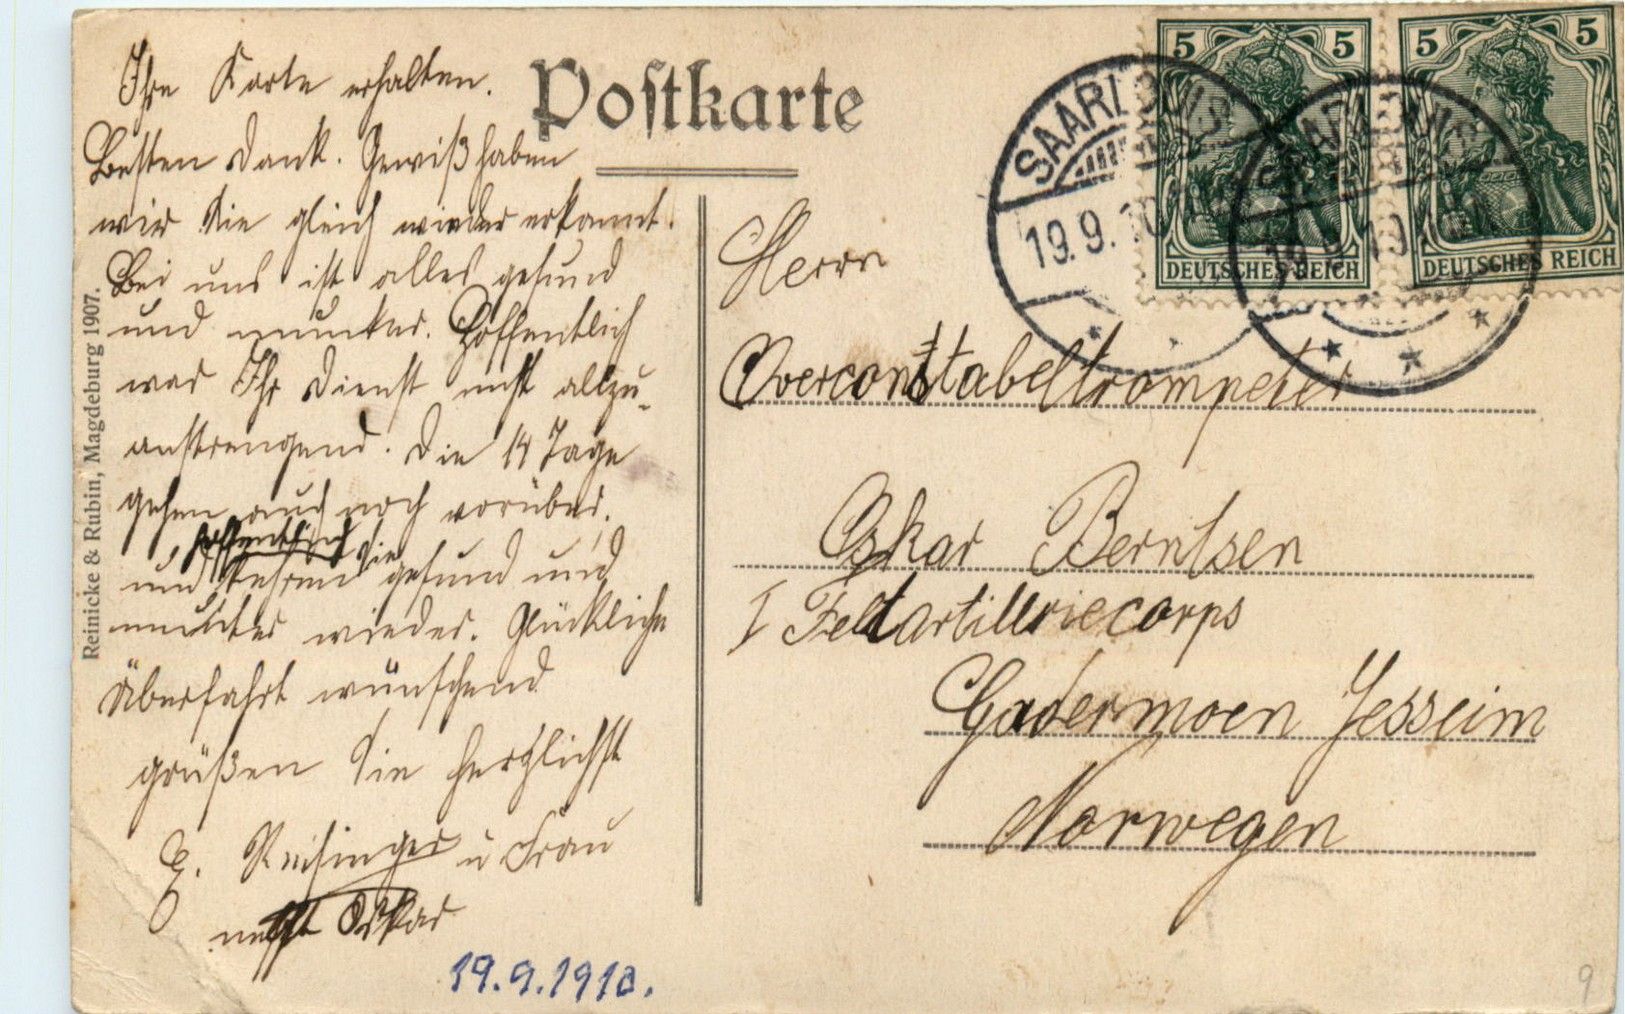 Postkarte
Ihre Karte erhalten.
Besten Dank. Gewiß haben
wir Sie gleich wieder erkannt.
Bei uns ist alles gesund
und munter. Hoffentlich
war Ihr Dienst nicht allzu-
anstrengend. Die 14 Tage
gehen auch noch vorüber,
hoffentlich
und kehren Sie gesund und
munter wieder. Glückliche
Überfahrt wünschend
grüßen Sie herzlichst
E. Reisinger u Frau
nebst Oskar
19.9.1910.
Reinicke & Rubin, Magdeburg 1907.
5 5
DEUTSCHES REICH
5 5
DEUTSCHES REICH
SAARLOUIS
19.9.10
SAARLOUIS
19.9.10
Herrn
Overconstabeltrompeter
Oskar Berntsen
I Feltartilleriecorps
Gadermoen Jesseim
Norwegen
9